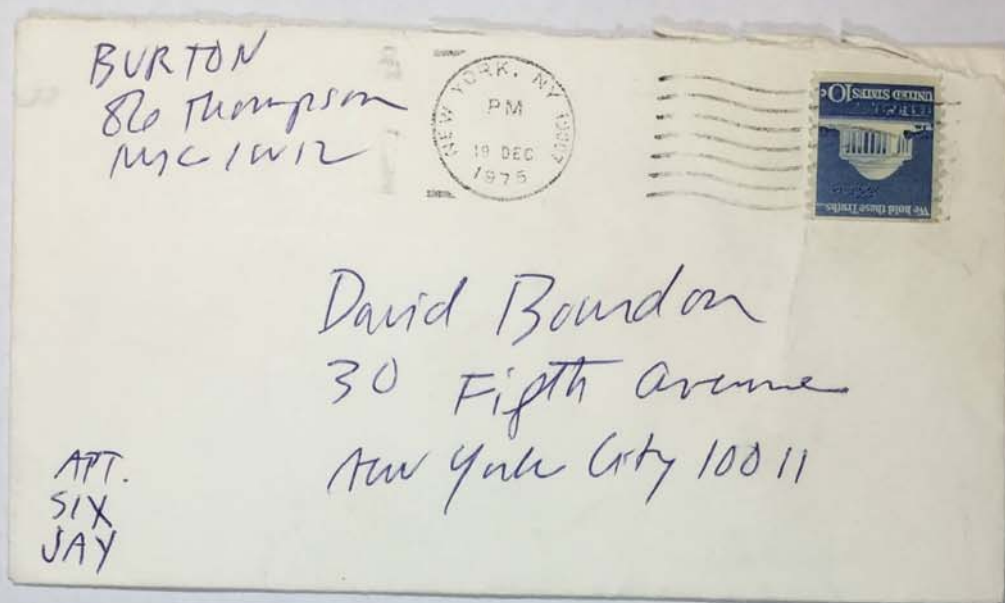 BURTON
86 Thompson
NYC 10012
NEW YORK, NY 10007
PM
19 DEC
1975
UNITED STATES 10c
We hold these Truths...
David Bourdon
30 Fifth Avenue
New York City 10011
APT.
SIX
JAY